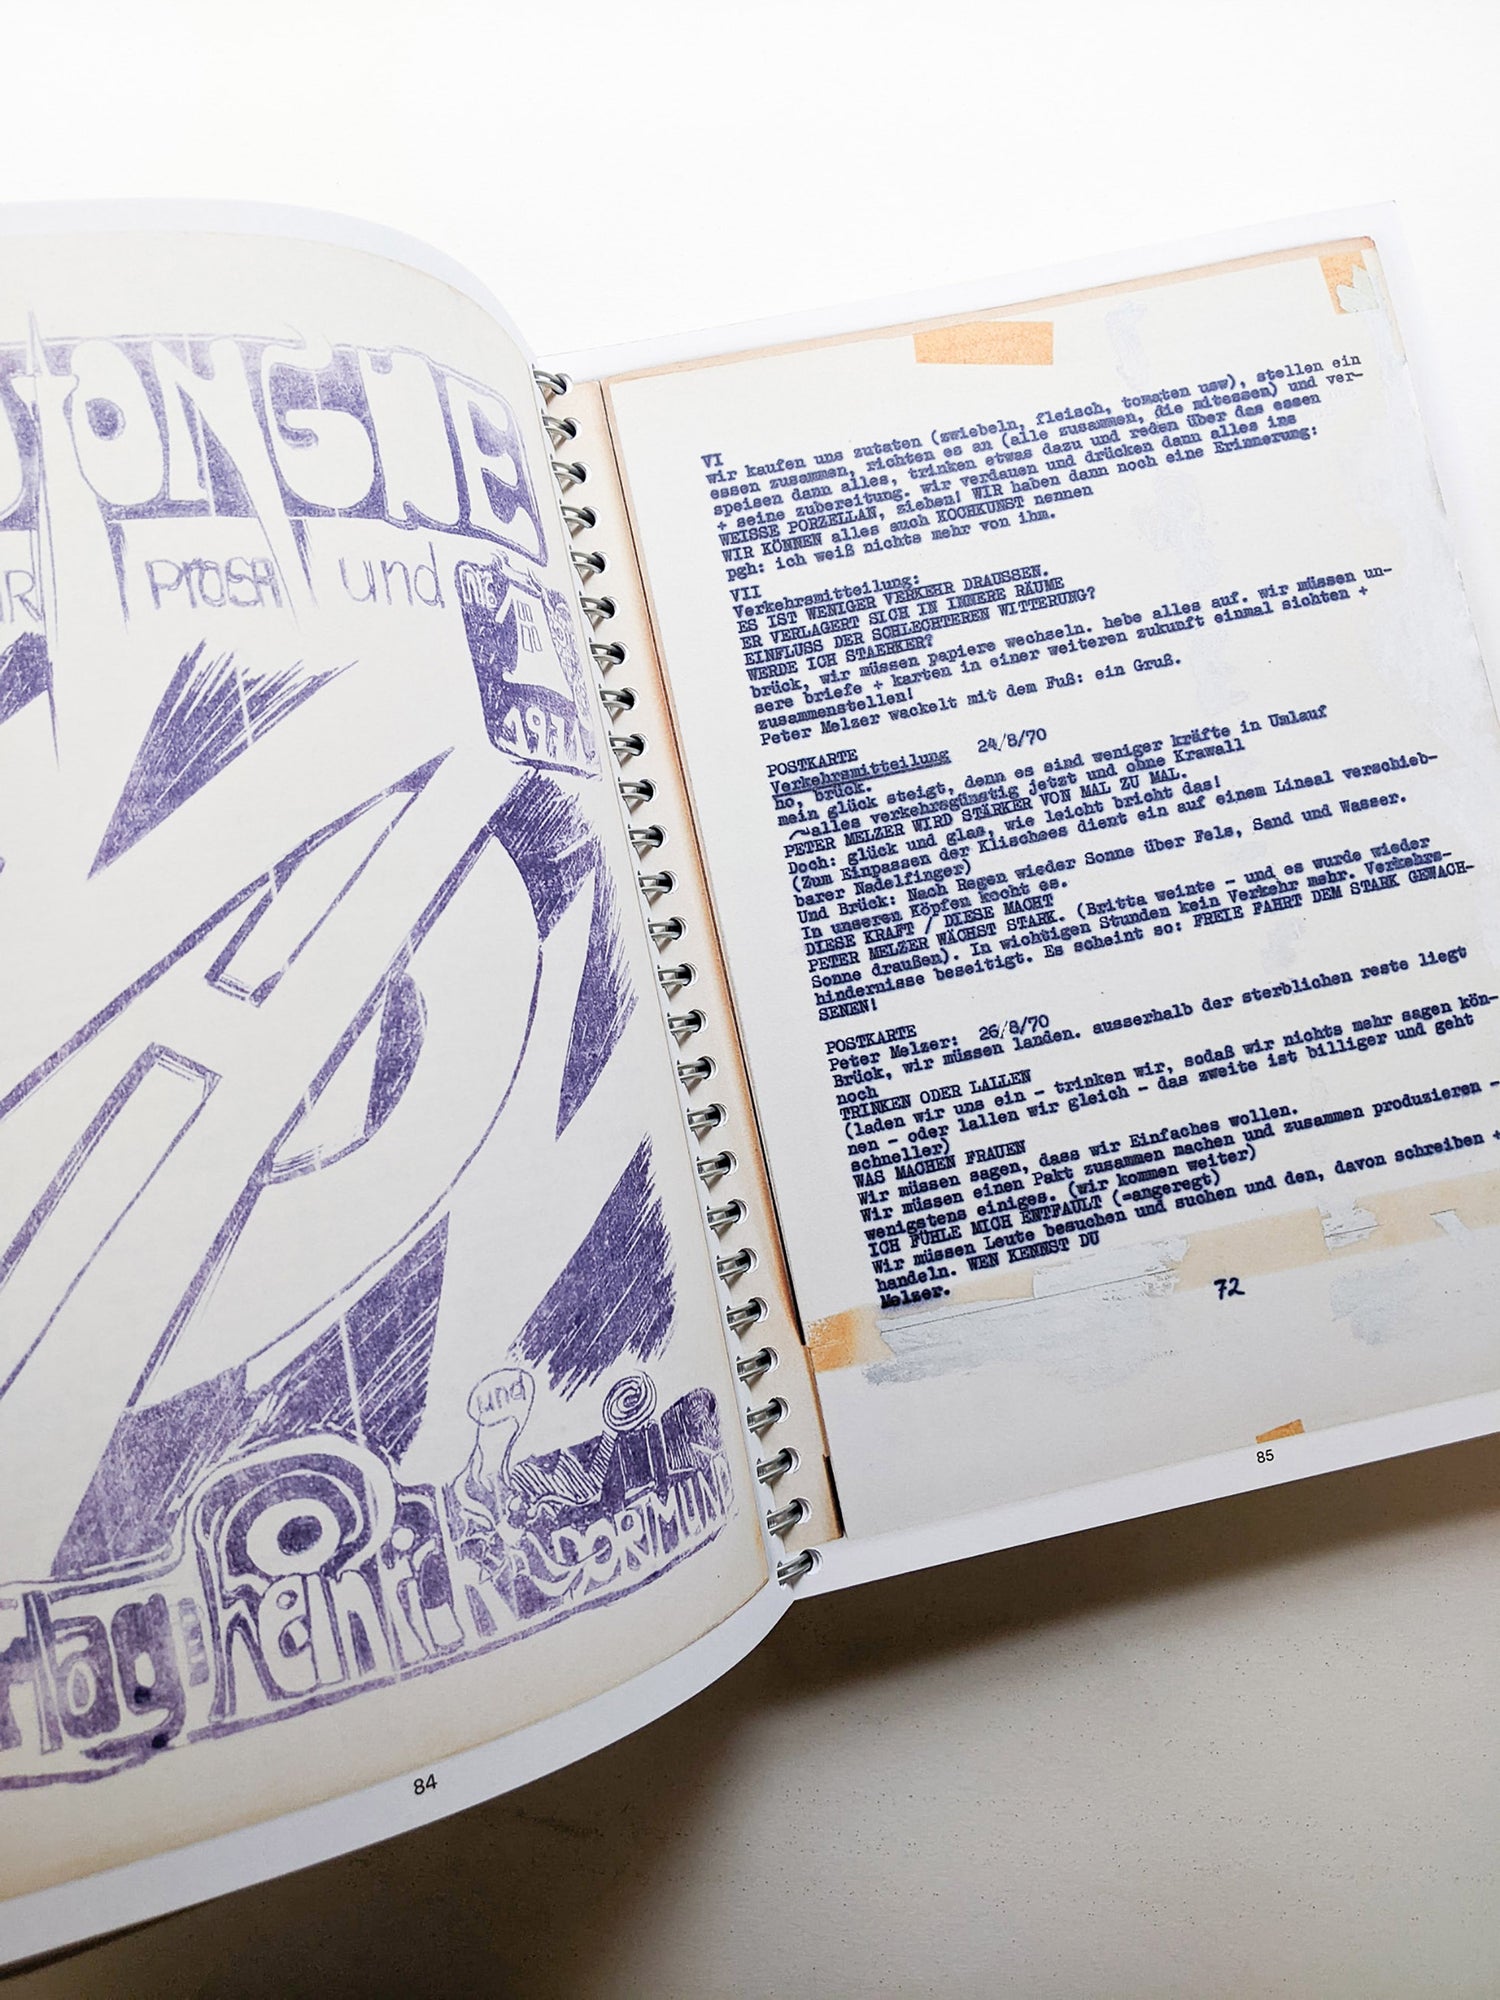 PROSA und
nr. 1
1971
und
Heinrich
DORTMUND
84
VI
wir kaufen uns zutaten (zwiebeln, fleisch, tomaten usw), stellen ein
essen zusammen, richten es an (alle zusammen, die mitessen) und ver-
speisen dann alles, trinken etwas dazu und reden über das essen
+ seine zubereitung. wir verdauen und drücken dann alles ins
WEISSE PORZELLAN, ziehen! WIR haben dann noch eine Erinnerung:
WIR KÖNNEN alles auch KOCHKUNST nennen
pgh: ich weiß nichts mehr von ihm.
VII
Verkehrsmitteilung:
ES IST WENIGER VERKEHR DRAUSSEN.
ER VERLAGERT SICH IN INNERE RÄUME
EINFLUSS DER SCHLECHTEREN WITTERUNG?
WERDE ICH STAERKER?
brück, wir müssen papiere wechseln. hebe alles auf. wir müssen un-
sere briefe + karten in einer weiteren zukunft einmal sichten +
zusammenstellen!
Peter Melzer wackelt mit dem Fuß: ein Gruß.
POSTKARTE 24/8/70
Verkehrsmitteilung
ho, brück.
mein glück steigt, denn es sind weniger kräfte in Umlauf
alles verkehrsgünstig jetzt und ohne Krawall
PETER MELZER WIRD STÄRKER VON MAL ZU MAL.
Doch: glück und glas, wie leicht bricht das!
(Zum Einpassen der Klischees dient ein auf einem Lineal verschieb-
barer Nadelfinger)
Und Brück: Nach Regen wieder Sonne über Fels, Sand und Wasser.
In unseren Köpfen kocht es.
DIESE KRAFT / DIESE MACHT
PETER MELZER WÄCHST STARK. (Britta weinte - und es wurde wieder
Sonne draußen). In wichtigen Stunden kein Verkehr mehr. Verkehrs-
hindernisse beseitigt. Es scheint so: FREIE FAHRT DEM STARK GEWACH-
SENEN!
POSTKARTE 26/8/70
Peter Melzer:
Brück, wir müssen landen. ausserhalb der sterblichen reste liegt
noch
TRINKEN ODER LALLEN
(laden wir uns ein - trinken wir, sodaß wir nichts mehr sagen kön-
nen - oder lallen wir gleich - das zweite ist billiger und geht
schneller)
WAS MACHEN FRAUEN
Wir müssen sagen, dass wir Einfaches wollen.
Wir müssen einen Pakt zusammen machen und zusammen produzieren -
wenigstens einiges. (wir kommen weiter)
ICH FÜHLE MICH ENTFAULT (=angeregt)
Wir müssen Leute besuchen und suchen und den, davon schreiben +
handeln. WEN KENNST DU
Melzer.
72
85